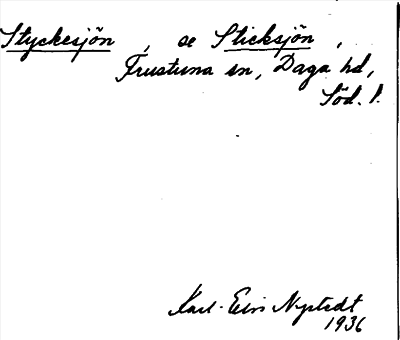 Styckesjön, se Sticksjön,
Frustuna sn, Daga hd,
Söd. l.
Karl-Elis Nystedt
1936